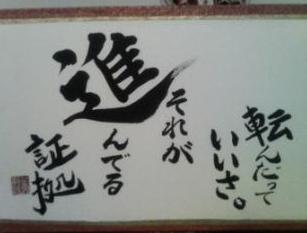 転んだって
いいさ。
それが
進んでる
証拠